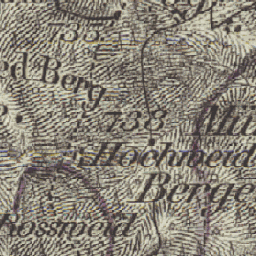 735
ed Berg
738
Hochmeid
Berge
Rossmeid